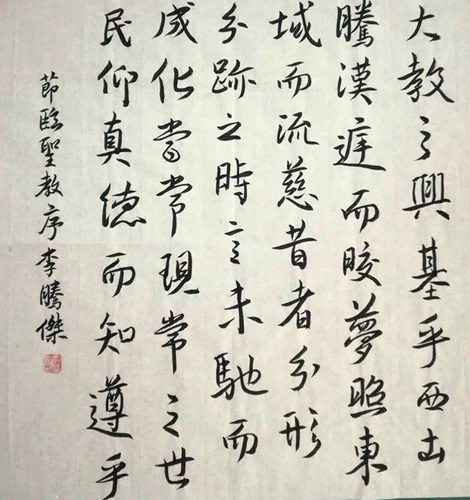 大教之興基乎西土
騰漢庭而皎夢照東
域而流慈昔者分形
分跡之時言未馳而
成化當常現常之世
民仰真德而知遵乎
節臨聖教序李騰傑